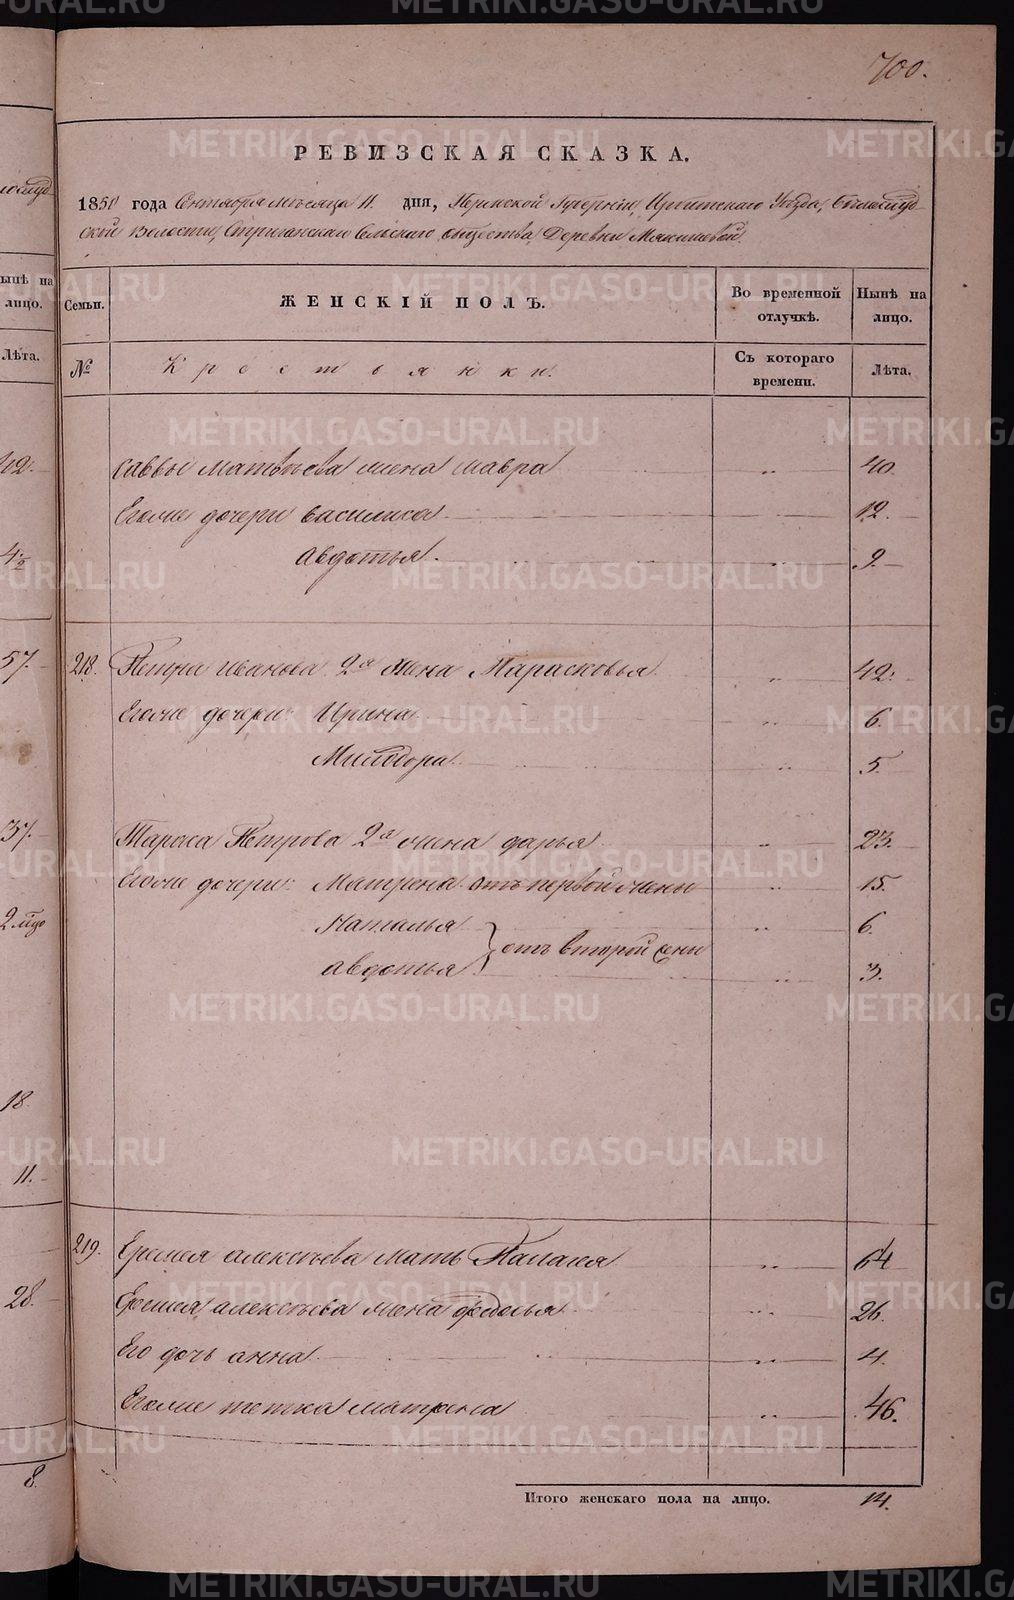 700.
РЕВИЗСКАЯ СКАЗКА.
1850 года Сентября месяца 11. дня, Пермской Губернии, Ирбитскаго Уѣзда,
ской Волости, Стриганскаго Сельскаго общества, Деревни Мякишевой
ынѣ на лицо.
Семьи.
ЖЕНСКІЙ ПОЛЪ.
Во временной отлучкѣ.
Нынѣ на лицо.
Лѣта.
№
Крестьянки.
Съ котораго времени.
Лѣта.
саввы матвѣева жена мавра „ 40.
Егоже дочери василиса „ 12.
авдотья „ 9.
57. 218. Петра иванова 2я жена Парасковья „ 42.
Егоже дочери: Ирина „ 6.
Милодора „ 5.
37. Тараса Петрова 2я жена дарья „ 23.
Егоже дочери: Матрена отъ первой жены „ 15.
Наталья „ 6.
авдотья } отъ второй жены „ 3.
18.
11.
219. Еремея алексѣева мать Палагея „ 64
28. Еремея алексѣева жена федосья „ 26.
Его дочь анна „ 4.
Егоже тетка матрена „ 46.
8. Итого женскаго пола на лицо. 14.
METRIKI.GASO-URAL.RU